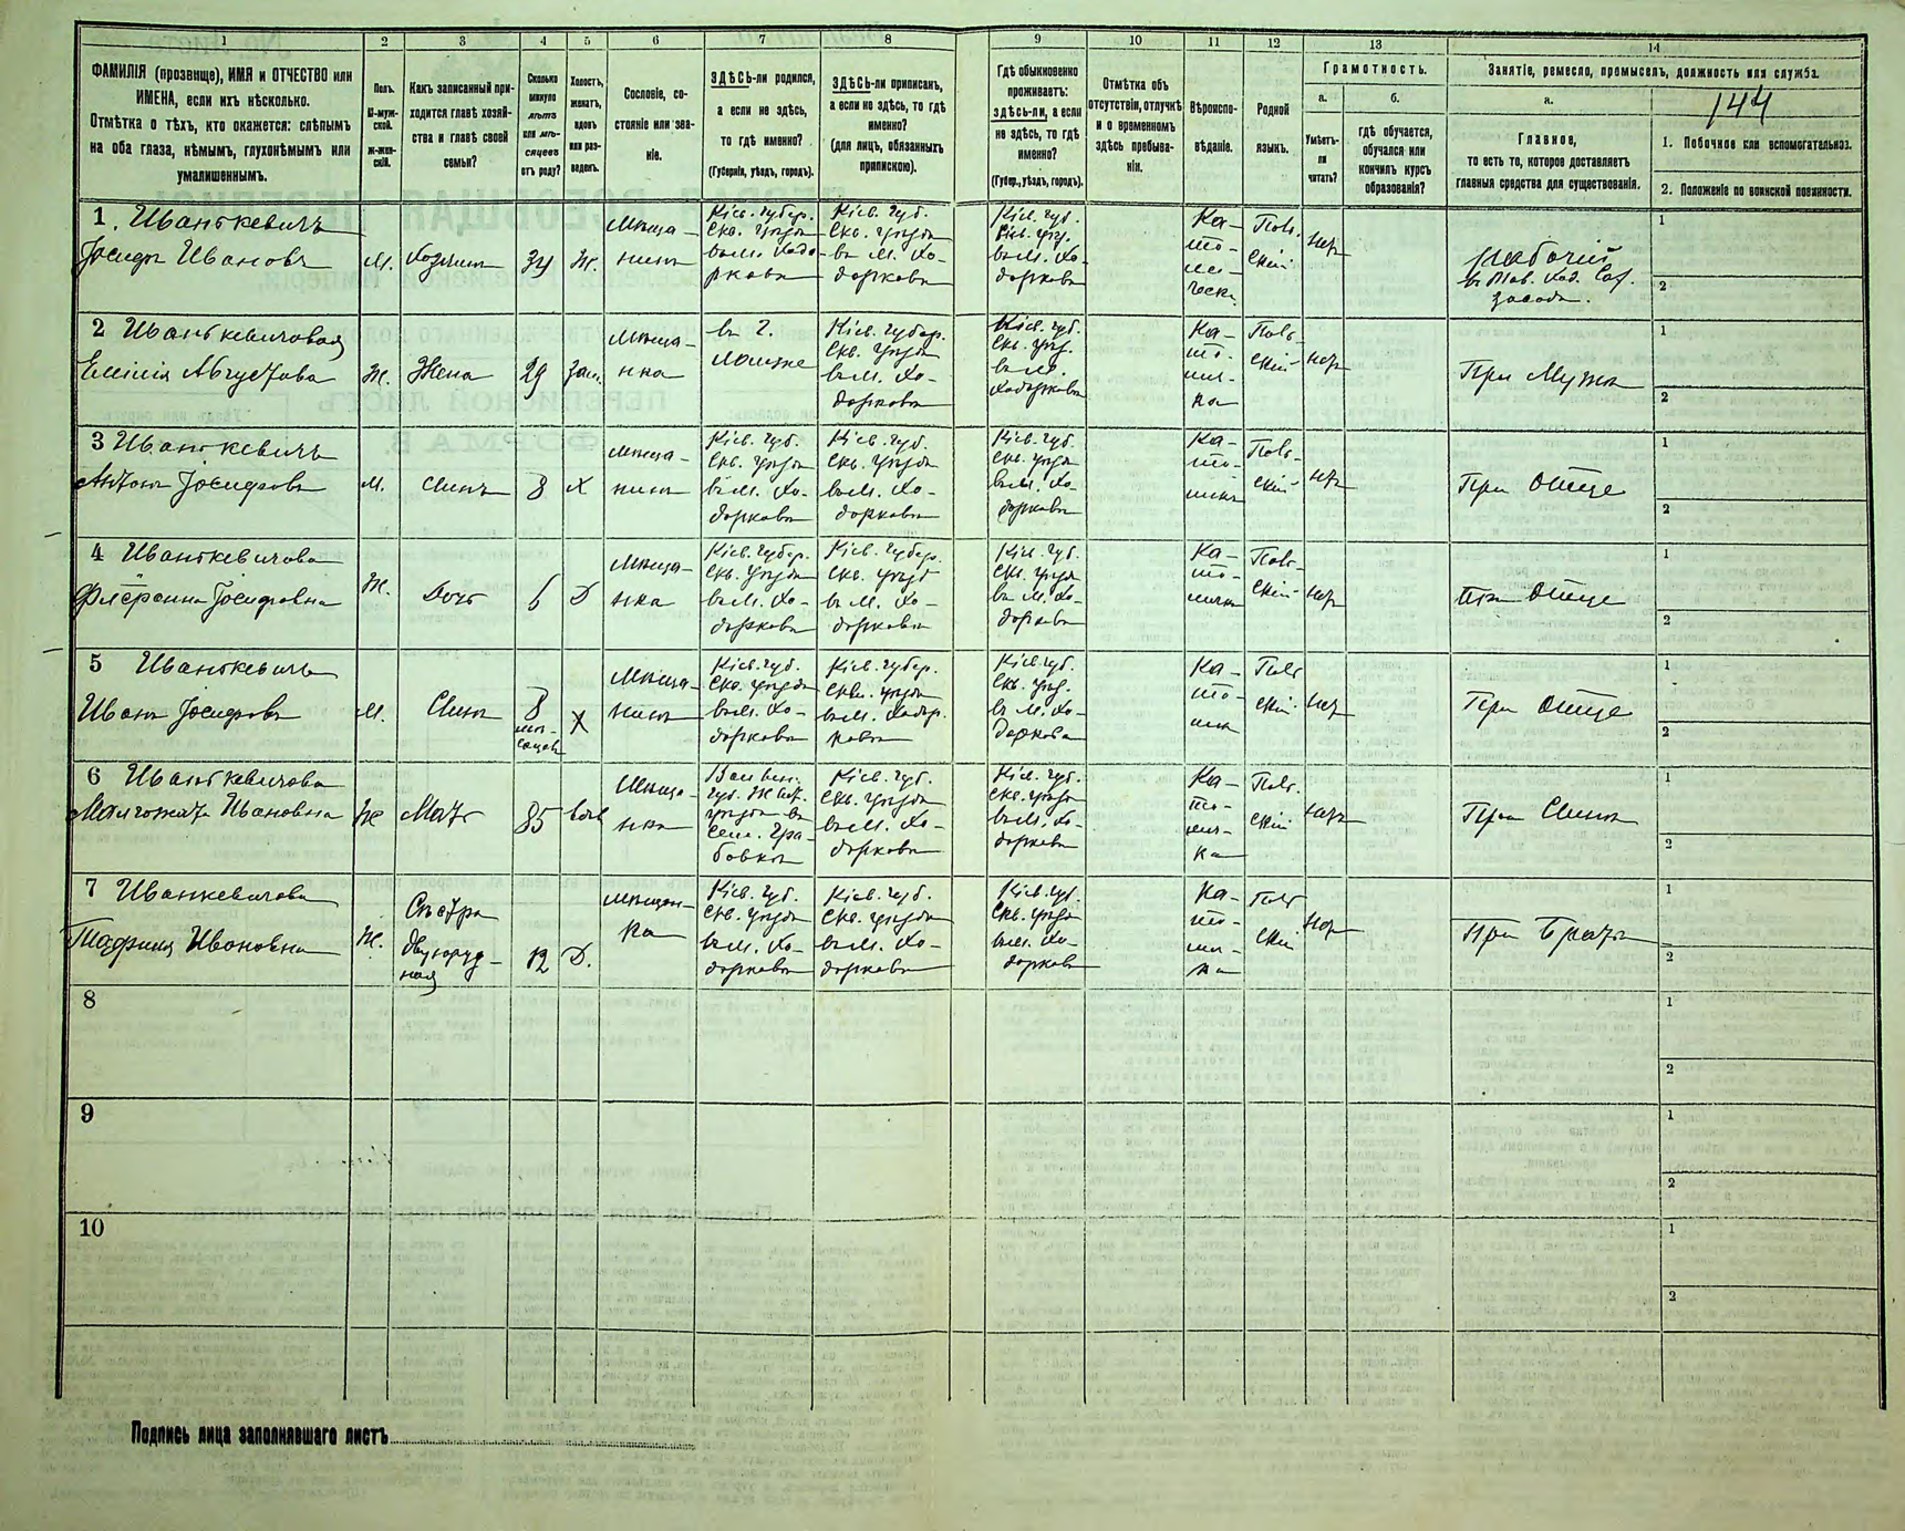 1
2
3
4
5
6
7
8
9
10
11
12
13
14
ФАМИЛІЯ (прозвище), ИМЯ и ОТЧЕСТВО или
ИМЕНА, если ихъ нѣсколько.
Отмѣтка о тѣхъ, кто окажется: слѣпымъ
на оба глаза, нѣмымъ, глухонѣмымъ или
умалишеннымъ.
Полъ.
М-муж-
ской.
Ж-жен-
скій.
Какъ записанный при-
ходится главѣ хозяй-
ства и главѣ своей
семьи?
Сколько
минуло
лѣтъ
или мѣ-
сяцевъ
отъ роду?
Холостъ,
женатъ,
вдовъ
или раз-
веденъ.
Сословіе, со-
стояніе или зва-
ніе.
ЗДѢСЬ-ли родился,
а если не здѣсь,
то гдѣ именно?
(Губернія, уѣздъ, городъ).
ЗДѢСЬ-ли приписанъ,
а если не здѣсь, то гдѣ
именно?
(для лицъ, обязанныхъ
припискою).
Гдѣ обыкновенно
проживаетъ:
здѣсь-ли, а если
не здѣсь, то гдѣ
именно?
(Губер., уѣздъ, городъ).
Отмѣтка объ
отсутствіи, отлучкѣ
и о временномъ
здѣсь пребыва-
ніи.
Вѣроиспо-
вѣданіе.
Родной
языкъ.
Грамотность.
а.
б.
Умѣетъ-
ли
читать?
гдѣ обучается,
обучался или
кончилъ курсъ
образованія?
Занятіе, ремесло, промыселъ, должность или служба.
а.
144
Главное,
то есть то, которое доставляетъ
главныя средства для существованія.
1. Побочное или вспомогательное.
2. Положеніе по воинской повинности.
1. Иванткевичъ
Іосифъ Ивановъ
М.
Хозяинъ
34
Ж.
Мѣща-
нинъ
Кіев. губер.
Скв. уѣзда
въ м. Ходо-
рковѣ
Кіев. губ.
Скв. уѣзда
въ м. Хо-
дорковѣ
Кіев. губ.
Скв. уѣз.
въ м. Хо-
дорковѣ
Ка-
то-
ли-
ческ.
Поль-
скій
нѣтъ
рабочій
въ Тов. Ход. Сах.
завода.
1
2
2 Иванткевичовая
Емілія Августова
Ж.
Жена
29
зам.
Мѣща-
нка
въ г.
Кіев. губер.
Скв. уѣзда
въ м. Хо-
дорковѣ
Кіев. губ.
Скв. уѣз.
въ м.
Ходорковѣ
Ка-
то-
лич-
ка
Поль-
скій
нѣтъ
При Мужѣ
1
2
3 Иванткевичъ
Антонъ Іосифовъ
М.
Сынъ
8
Х
Мѣща-
нинъ
Кіев. губ.
Скв. уѣзда
въ м. Хо-
дорковѣ
Кіев. губ.
Скв. уѣзда
въ м. Хо-
дорковѣ
Кіев. губ.
Скв. уѣзда
въ м. Хо-
дорковѣ
Ка-
то-
ликъ
Поль-
скій
нѣтъ
При Отце
1
2
4 Иванткевичова
Іосифовна
Ж.
Дочь
6
Д
Мѣща-
нка
Кіев. губер.
Скв. уѣзда
въ м. Хо-
дорковѣ
Кіев. губер.
Скв. уѣзд
въ м. Хо-
дорковѣ
Кіев. губ.
Скв. уѣзда
въ м. Хо-
дорковѣ
Ка-
то-
личка
Поль-
скій
нѣтъ
При Отце
1
2
5 Иванткевичъ
Иванъ Іосифовъ
М.
Сынъ
8
мѣ-
сяцевъ
Х
Мѣща-
нинъ
Кіев. губ.
Скв. уѣзда
въ м. Хо-
дорковѣ
Кіев. губер.
Скв. уѣзда
въ м. Ходор-
ковѣ
Кіев. губ.
Скв. уѣз.
въ м. Хо-
доркова
Ка-
то-
ликъ
Поль
скій
нѣтъ
При Отце
1
2
6 Иванткевичова
Малгожата Ивановна
Ж
Мать
85
вдов
Мѣща-
нка
Волын.
губ. Жит.
уѣзда въ
сел. Гра-
бовкѣ
Кіев. губ.
Скв. уѣзда
въ м. Хо-
дорковѣ
Кіев. губ.
Скв. уѣзда
въ м. Хо-
дорковѣ
Ка-
то-
лич-
ка
Поль-
скій
нѣтъ
При Сынѣ
1
2
7 Иванкевичова
Ивановна
Ж.
Сѣстра
двуюрод-
ная
12
Д.
Мѣщан-
ка
Кіев. губ.
Скв. уѣзда
въ м. Хо-
дорковѣ
Кіев. губ.
Скв. уѣзда
въ м. Хо-
дорковѣ
Кіев. губ.
Скв. уѣзда
въ м. Хо-
дорковѣ
Ка-
то-
лич-
ка
Поль
скій
нѣтъ
При Братѣ
1
2
8
1
2
9
1
2
10
1
2
Подпись лица заполнявшаго листъ